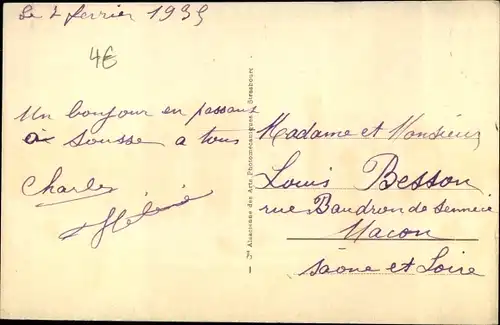 Le 2 février 1935
4€
Un bonjour en passant
à Sousse a tous
Charles
Hélène
Sté Alsacienne des Arts Photomécaniques Strasbourg
Madame et Monsieur
Louis Besson
rue Baudron de Senneci
Macon
Saône et Loire